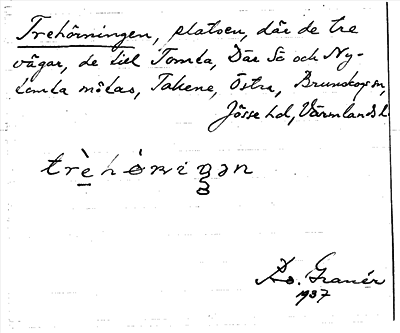 Trehörningen, platsen, där de tre
vägar, de till Tomta, Där Sö och Ny-
tomta mötas, Takene, Östra, Brunskogs sn,
Jösse hd, Värmlands l.
trèhörniŋən
R. Granér
1937